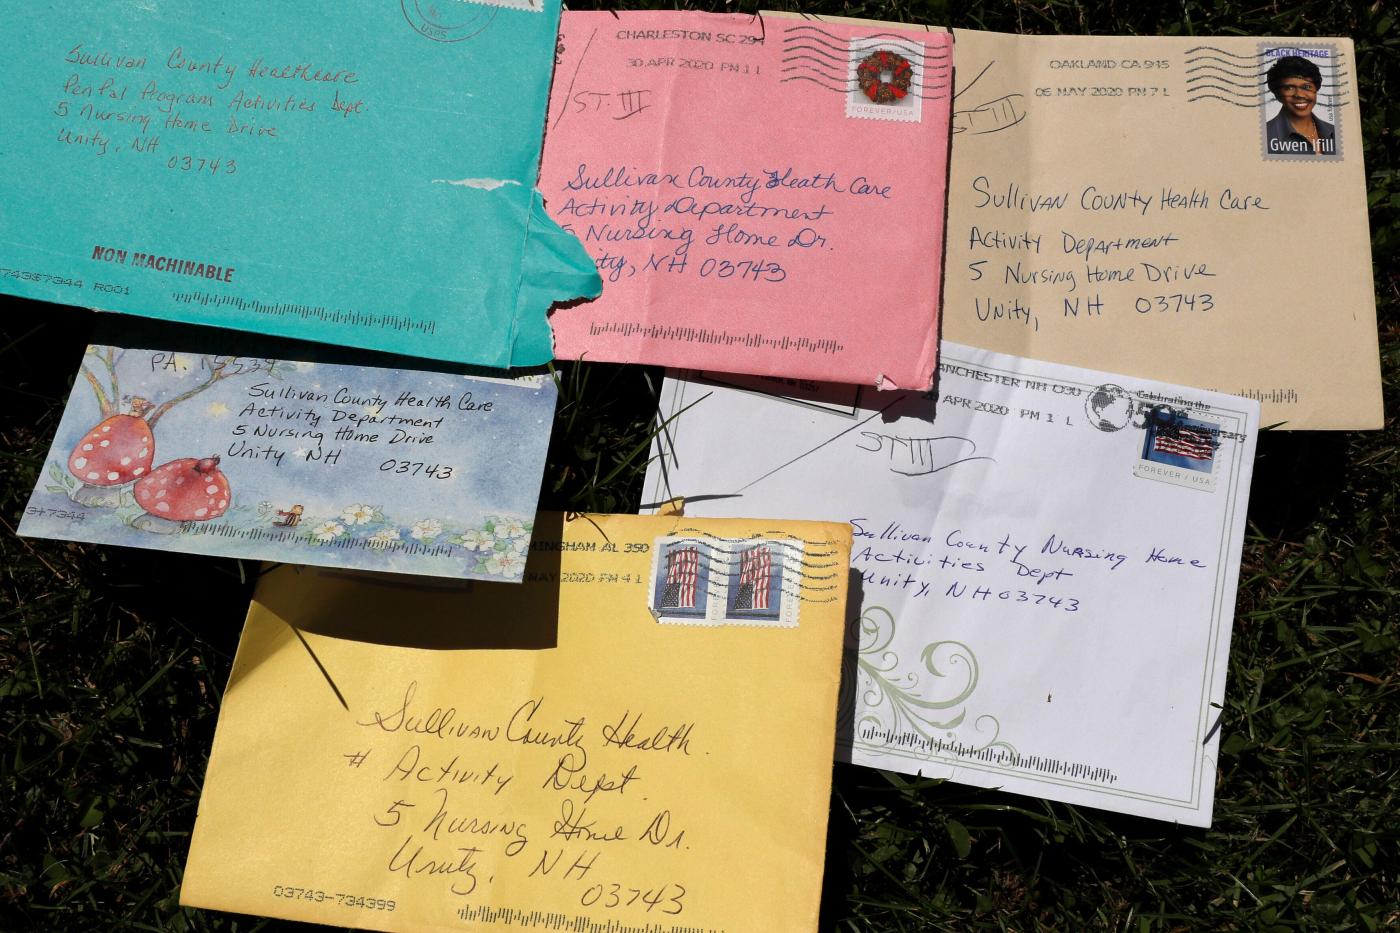 USPS
Sullivan County Healthcare
Pen Pal Program Activities Dept.
5 Nursing Home Drive
Unity, NH
03743
NON MACHINABLE
R001
CHARLESTON SC 294
30 APR 2020 PM 1 L
ST. III
FOREVER/USA
Sullivan County Heath Care
Activity Department
5 Nursing Home Dr.
ity, NH 03743
OAKLAND CA 945
06 MAY 2020 PM 7 L
III
BLACK HERITAGE
Gwen Ifill
Sullivan County Health Care
Activity Department
5 Nursing Home Drive
Unity, NH 03743
PA. 15539
Sullivan County Health Care
Activity Department
5 Nursing Home Drive
Unity NH 03743
3+7344
ANCHESTER NH 030
APR 2020 PM 1 L
Celebrating the
50th
Anniversary
ST III
FOREVER / USA
Sullivan County Nursing Home
Activities Dept
Unity, NH 03743
MINGHAM AL 350
MAY 2020 PM 4 L
FOREVER
FOREVER
Sullivan County Health
# Activity Dept.
5 Nursing Home Dr.
Unity, NH
03743
03743-734399